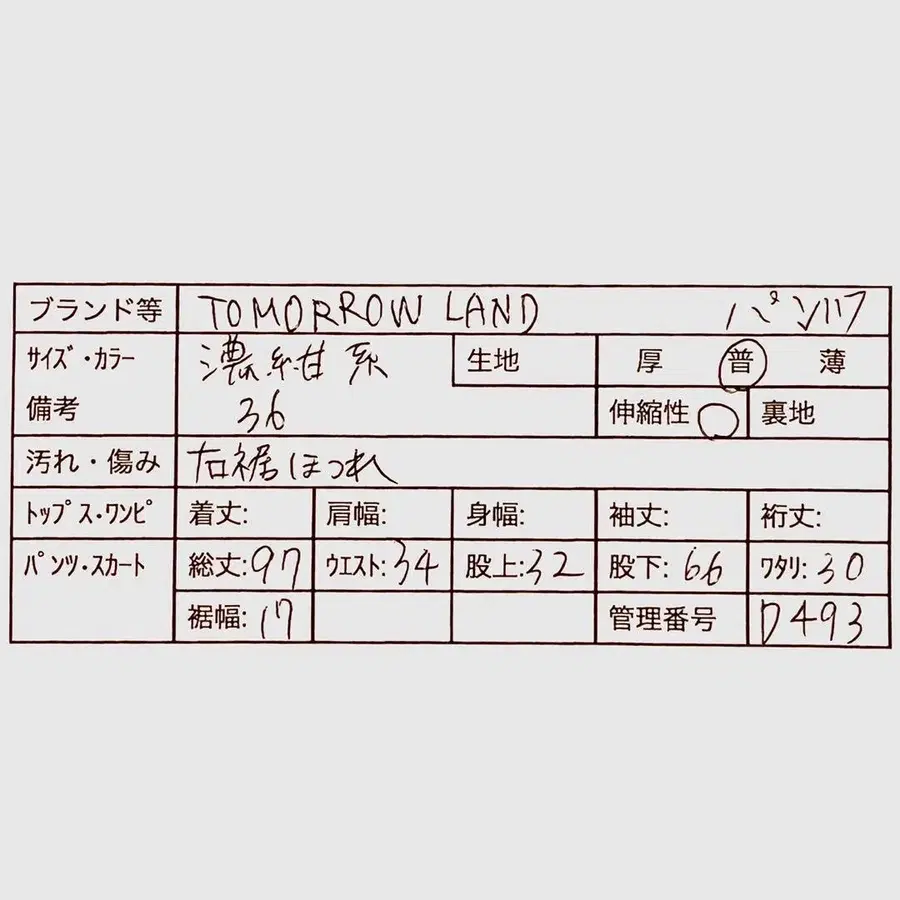 ブランド等 TOMORROW LAND パンツ
サイズ・カラー 濃紺系 生地 厚 普 薄
備考 36 伸縮性 ○ 裏地
汚れ・傷み 右裾ほつれ
トップス・ワンピ 着丈: 肩幅: 身幅: 袖丈: 裄丈:
パンツ・スカート 総丈:97 ウエスト:34 股上:32 股下:66 ワタリ:30
裾幅:17 管理番号 D493